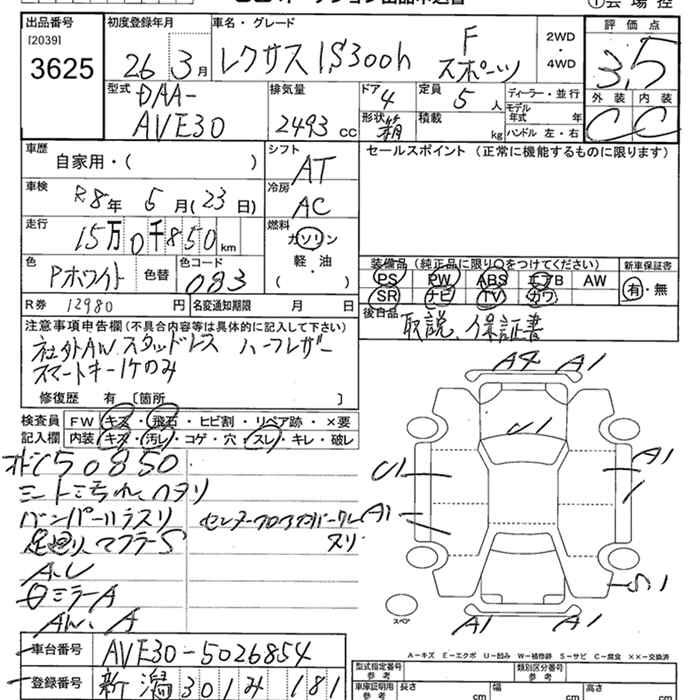 出品番号 初度登録年月 車名・グレード 評価点
[2039]
3625 26年3月 レクサス IS300h F スポーツ 2WD・4WD 3.5
型式 DAA-AVE30 排気量 2493 cc ドア 4 定員 5人 ディーラー・並行 外装 内装
形状 箱 積載 kg モデル年式 年 C C
ハンドル 左・右
車歴 シフト セールスポイント(正常に機能するものに限ります)
自家用・( ) AT
車検 R8年 5月(23日) 冷房 AC
走行 15万0千850km 燃料 ガソリン 軽・油 ( )
色 Pホワイト 色替 色コード 083 装備品(純正品に限り○をつけてください) 新車保証書
PS PW ABS エアB AW 有・無
SR ナビ TV カワ
R券 12980円 名変通知期限 月 日 後日品 取説、保証書
注意事項申告欄(不具合内容等は具体的に記入して下さい)
社外AW スタッドレス ハーフレザー
スマートキー1ケのみ
修復歴 有 〔箇所 〕
検査員 FW キズ・飛石・ヒビ割・リペア跡・×要
記入欄 内装 キズ・汚レ・コゲ・穴・スレ・キレ・破レ
オドC50850
シート汚れ、ヘタリ
バンパーウラスリ センターフロアカバークレ
足廻り、マフラーS スリ
A.U
ミラーA
AW.A
A4 A1
U1
U1 A1
A1
S1
A1 A1
スペア
A-キズ E-エクボ U-凹み W-補修跡 S-サビ C-腐食 ××-交換済
車台番号 AVE30-5026854 型式指定番号 参考 類別区分番号 参考
登録番号 新潟 301 み 181 車庫証明用 参考 長さ cm 幅 cm 高さ cm